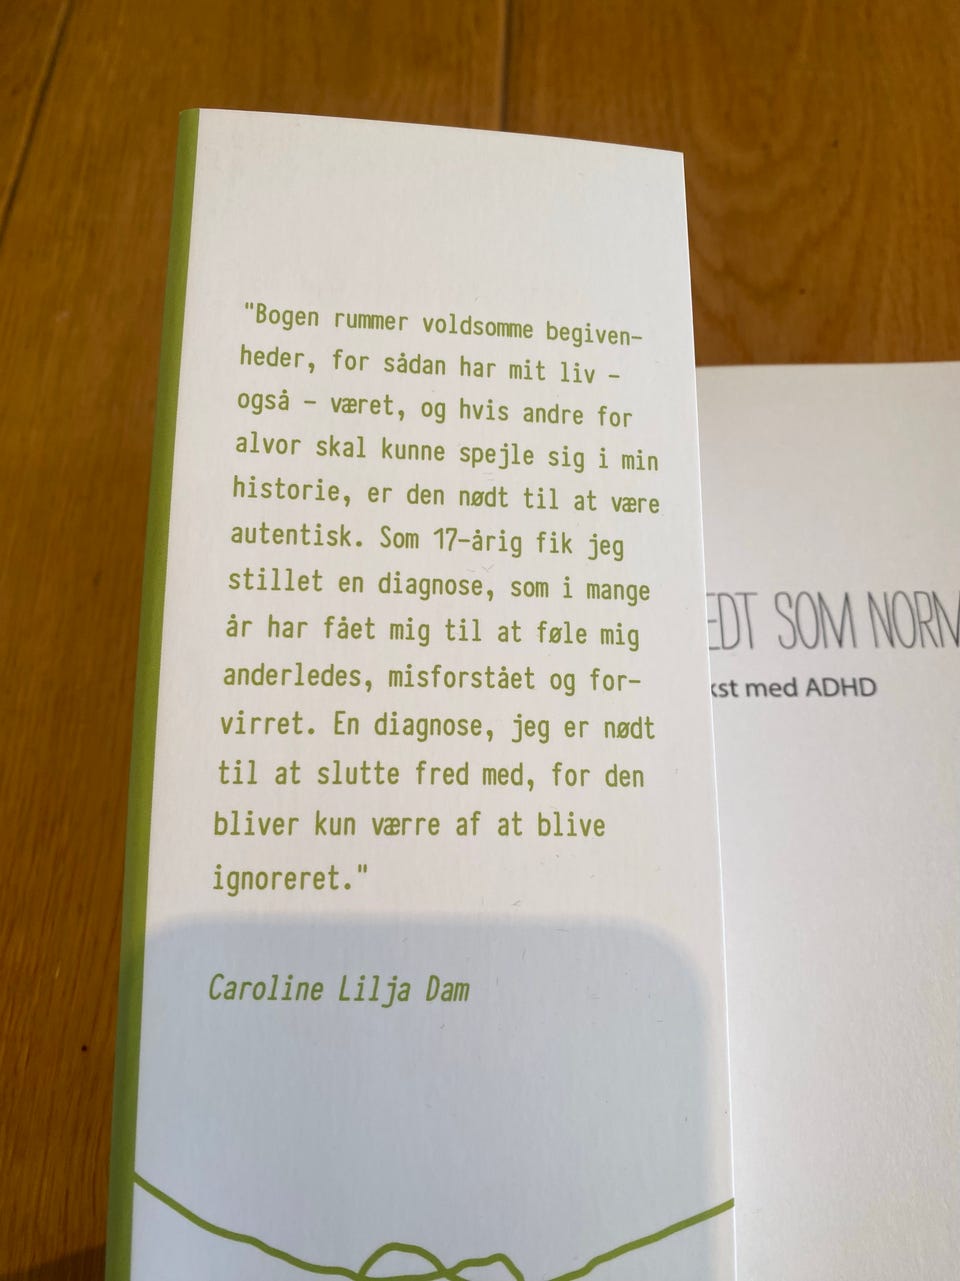 "Bogen rummer voldsomme begiven-
heder, for sådan har mit liv –
også – været, og hvis andre for
alvor skal kunne spejle sig i min
historie, er den nødt til at være
autentisk. Som 17-årig fik jeg
stillet en diagnose, som i mange
år har fået mig til at føle mig
anderledes, misforstået og for-
virret. En diagnose, jeg er nødt
til at slutte fred med, for den
bliver kun værre af at blive
ignoreret."
Caroline Lilja Dam
SOM
med ADHD